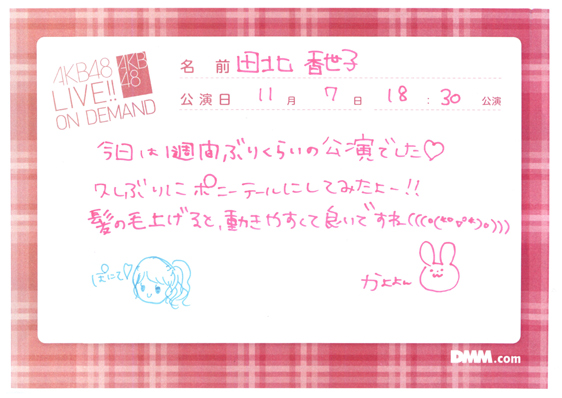 AKB48
LIVE!!
ON DEMAND
AKB
48
名 前 田北 香世子
公演日 11月 7日 18:30 公演
今日は1週間ぶりくらいの公演でした♡
久しぶりにポニーテールにしてみたよー!!
髪の毛上げると、動きやすくて良いですね(((o(*゚▽゚*)o)))
ぽにて♡
かよよん
DMM.com